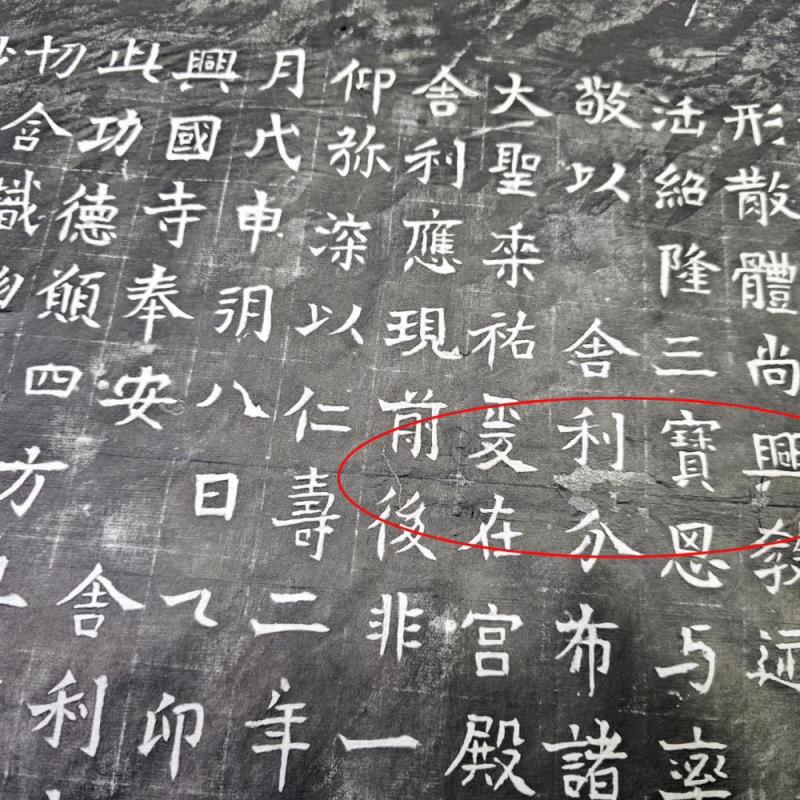 形散體尚興教
法紹隆三寶恩与率
敬以 舍利分布諸
大聖垂祐爰在宮殿
舍利應現前後非一
仰弥深以仁壽二年
月戊申朔八日乙卯
興國寺奉安 舍利
此功德願四方
切含識